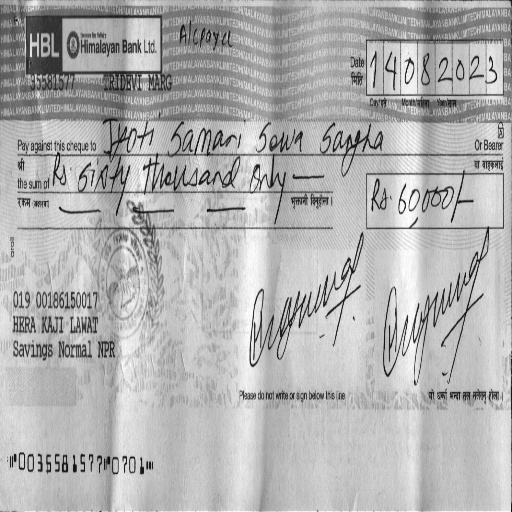 HBL Himalayan Bank Ltd. A/c payee
35581577 TRIDEVI MARG
Date मिति 14082023
Day/गते Month/महिना Year/साल
Pay against this cheque to Jyoti Samari Sewa Sangha Or Bearer
श्री वा वाहकलाई
the sum of Rs. Sixty thousand Only
रकम अक्षरमा भुक्तानी दिनुहोला।
Rs. 60,000/-
019 00186150017
HERA KAJI LAWAT
Savings Normal NPR
Please do not write or sign below this line
⑈0035581577⑈0701⑈